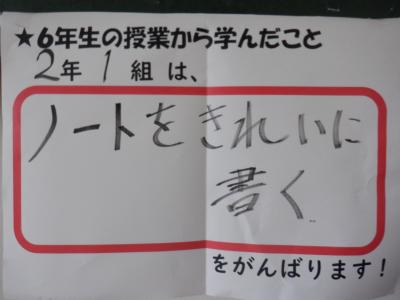 ★6年生の授業から学んだこと
2年1組は、
ノートをきれいに
書く
をがんばります!